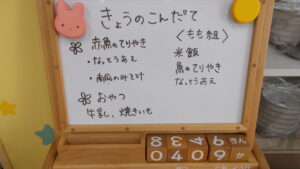 きょうのこんだて
赤魚のてりやき
・なっとうあえ
・南瓜のみそ汁
おやつ
牛乳、焼きいも
〈もも組〉
米飯
魚のてりやき
なっとうあえ